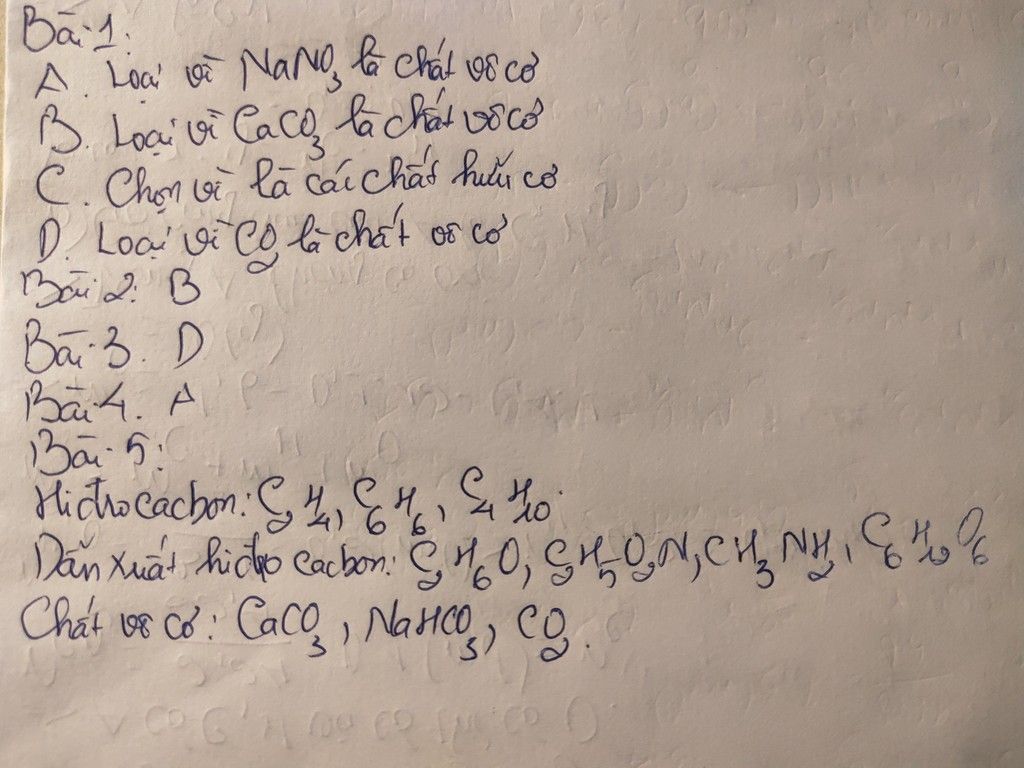 Bài 1:
A. Loại vì NaNO3 là chất vô cơ
B. Loại vì CaCO3 là chất vô cơ
C. Chọn vì là các chất hữu cơ
D. Loại vì CO2 là chất vô cơ
Bài 2: B
Bài 3. D
Bài 4. A
Bài 5:
Hiđrocacbon: C2H4, C6H6, C4H10.
Dẫn xuất hiđro cacbon: C2H6O, C2H5O2N, CH3NH2, C6H12O6
Chất vô cơ: CaCO3, NaHCO3, CO2.